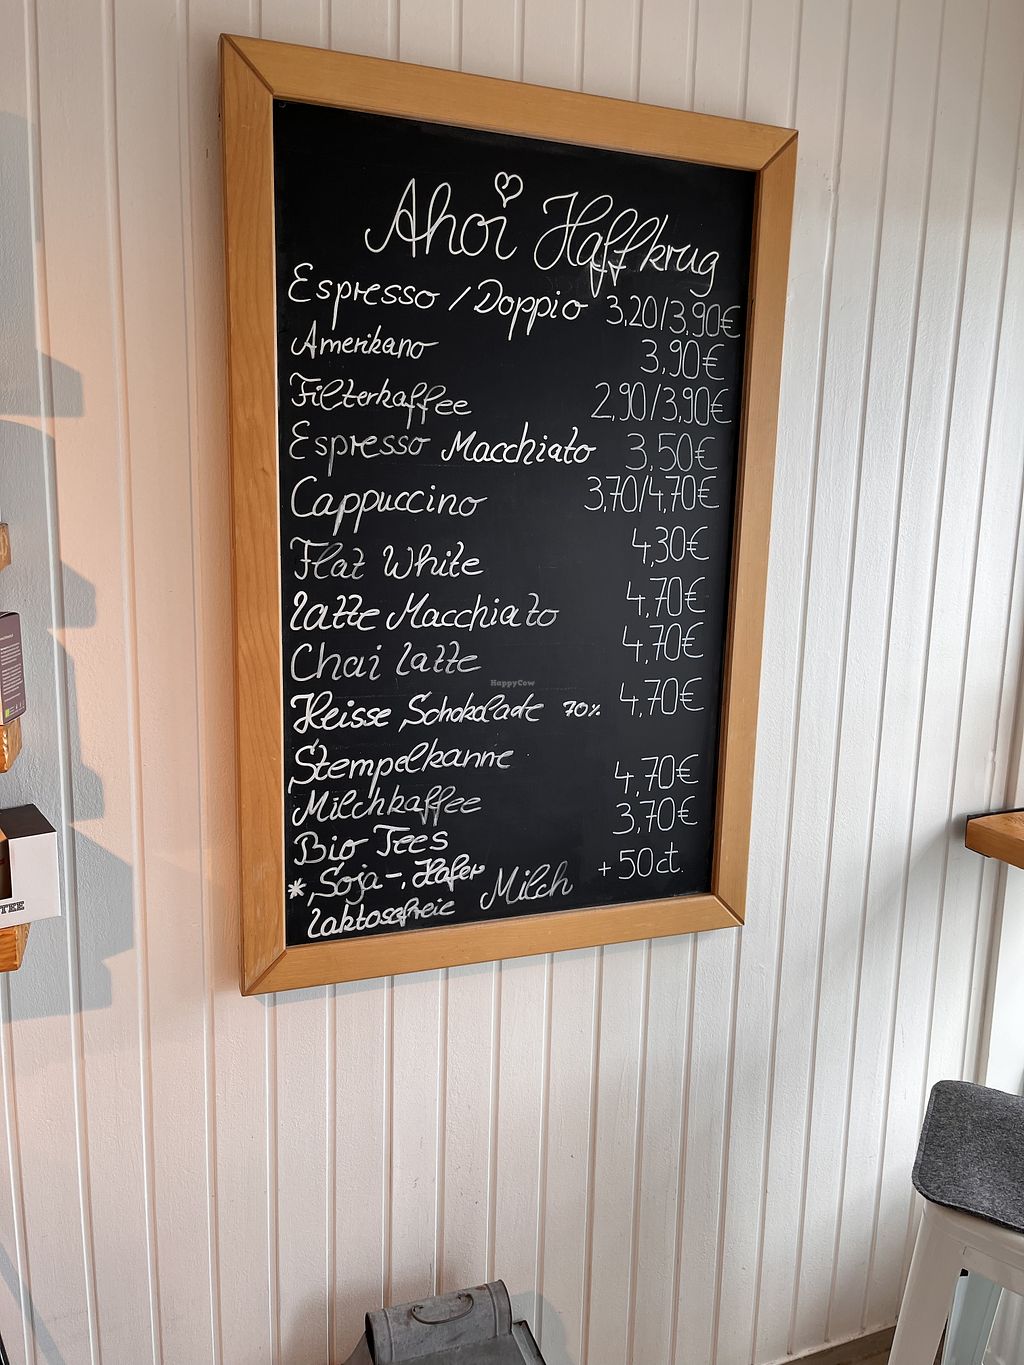 Ahoi Haffkrug
Espresso / Doppio 3,20/3,90€
Amerikano 3,90€
Filterkaffee 2,90/3,90€
Espresso Macchiato 3,50€
Cappuccino 3,70/4,70€
Flat White 4,30€
Latte Macchiato 4,70€
Chai Latte 4,70€
Heisse Schokolade 70% 4,70€
Stempelkanne
Milchkaffee 4,70€
Bio Tees 3,70€
* Soja-, Hafer Milch + 50ct.
laktosefreie
HappyCow
TEE